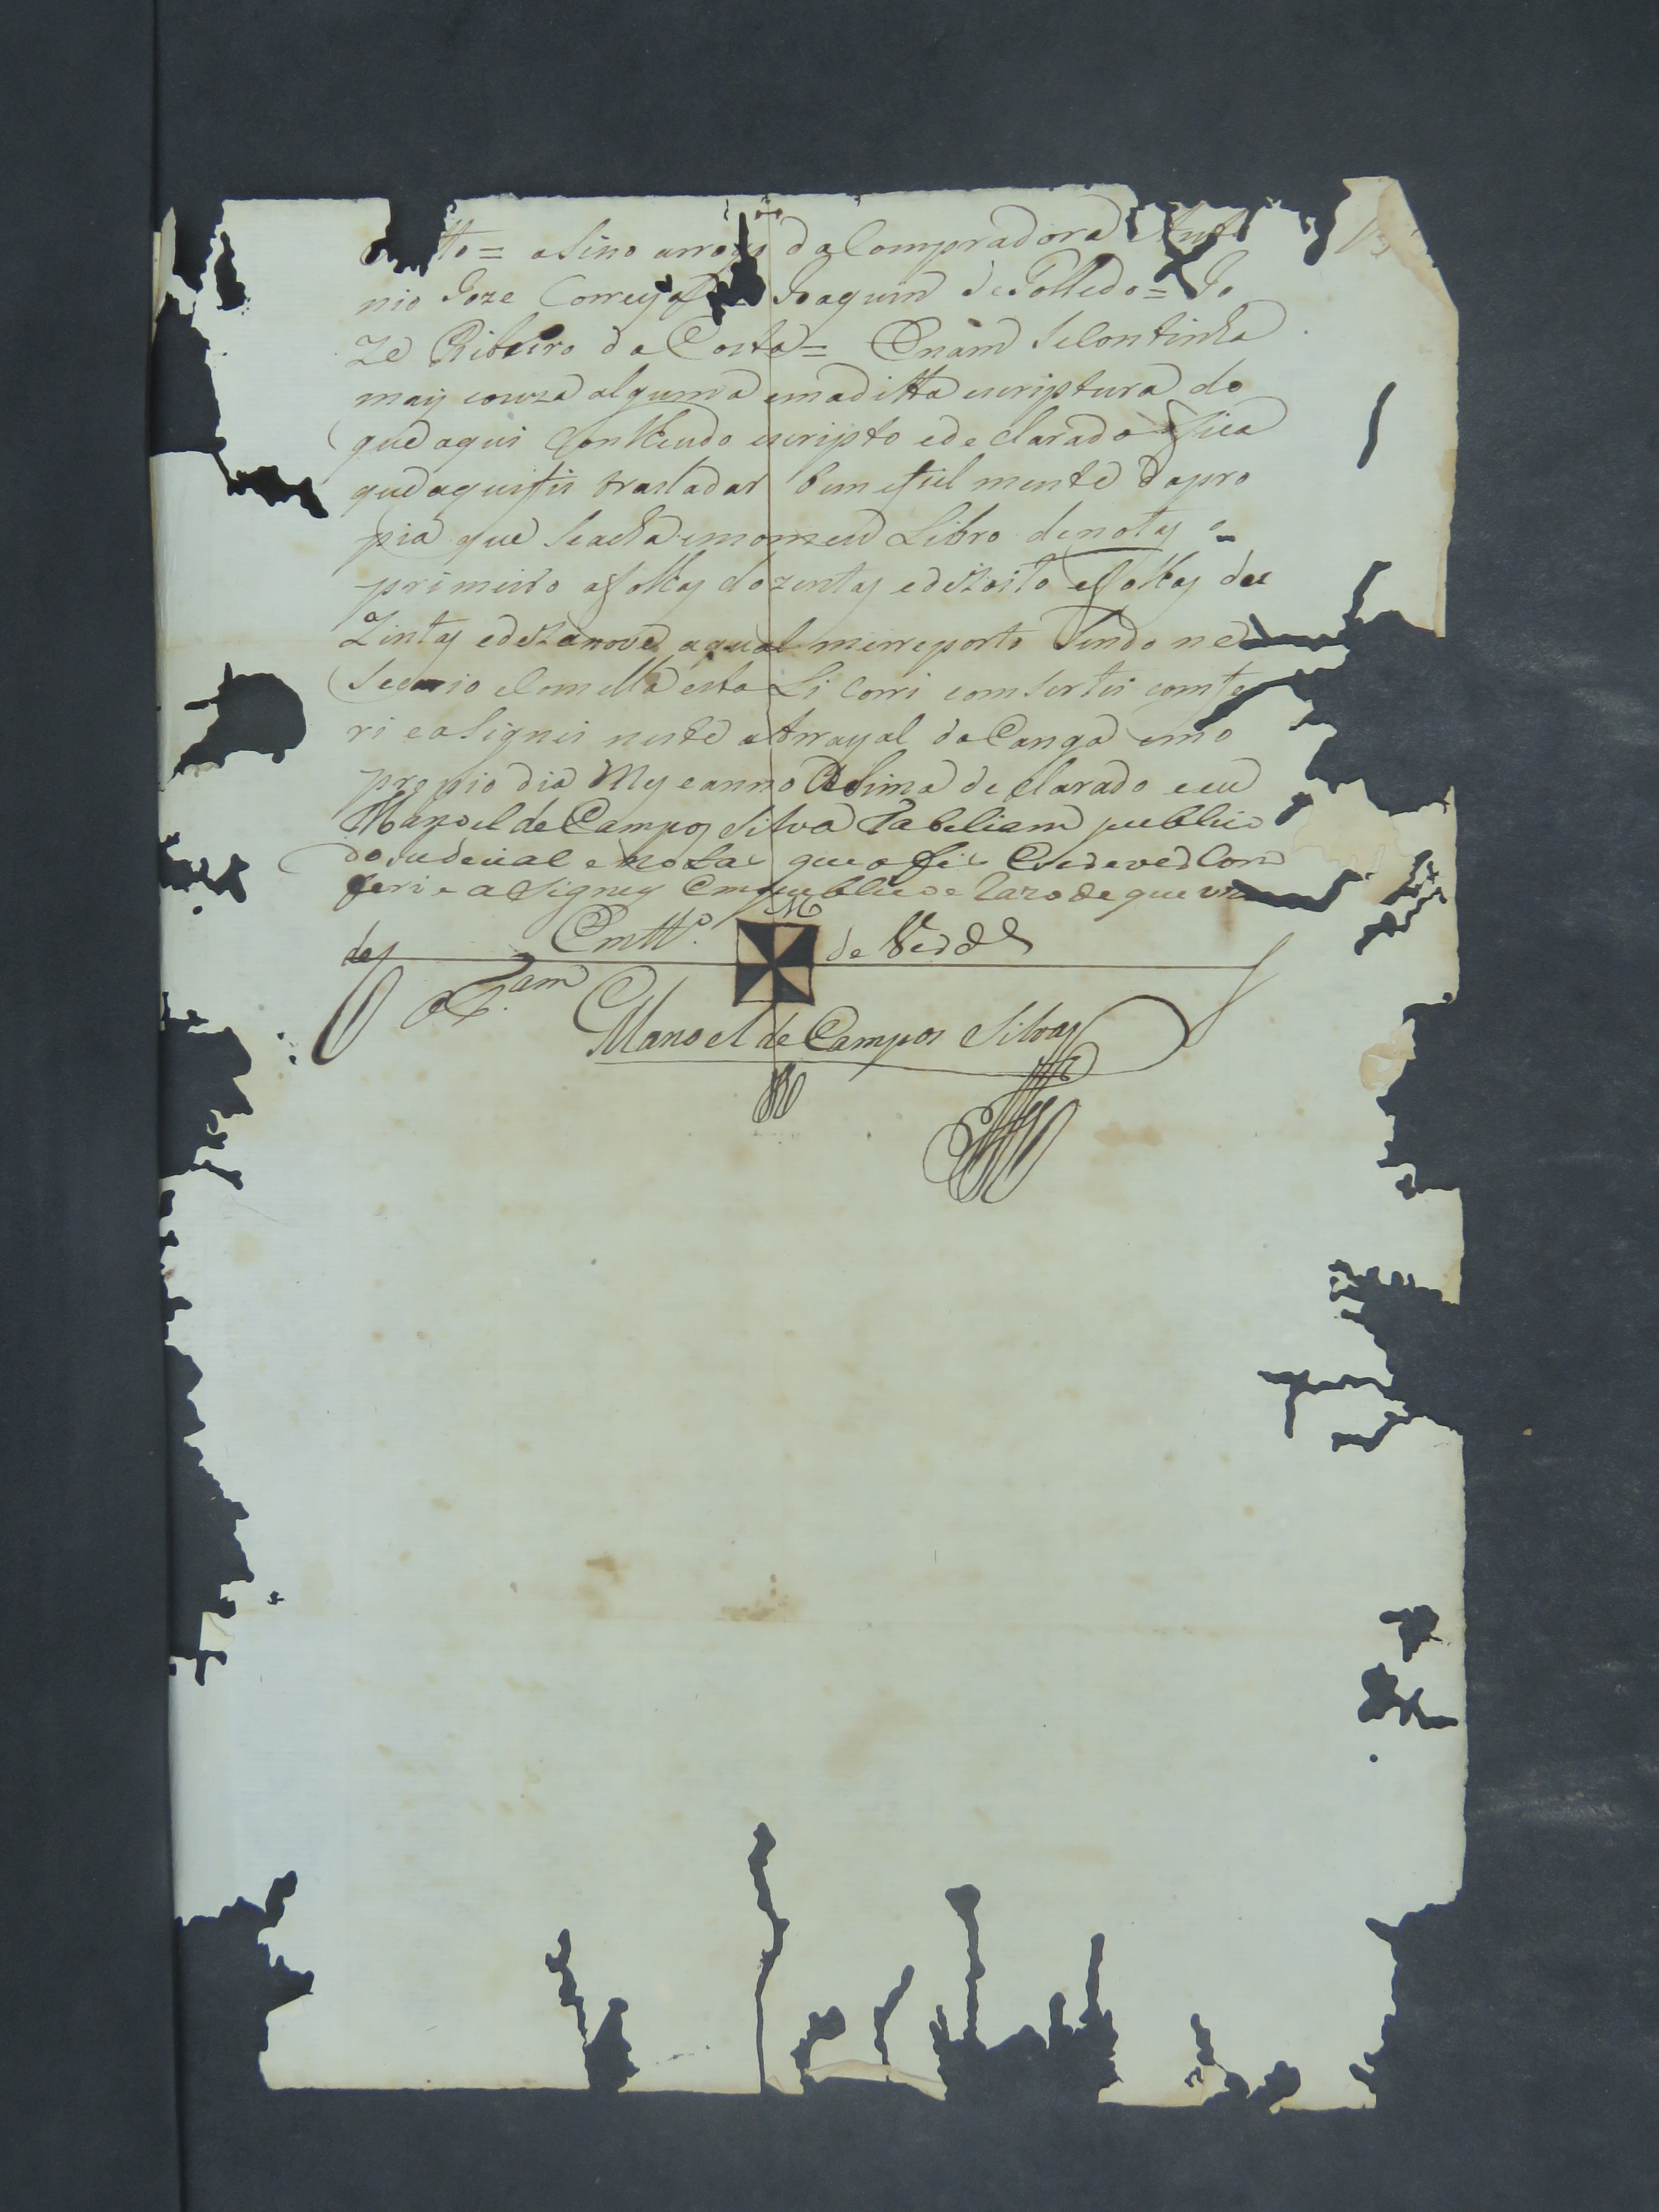 tto = asino arrogo da Compradora Anto
nio Joze Correya Joaquim de Tolledo = Jo
ze Ribeiro da Costa = Enam se Continha
mais couza alguma ema ditta escriptura do
que aqui Contheudo escripto e de clarado e fica
que aqui fis trasladar bem e fiel mente da pro
pia que se acha emomeu Libro de notas
primeiro a folhas dozentas e dezoito e folhas du
Zintas e dezanove aqual me reporto Sendo ne
Secario e Com ella esta Li Corri comsertei comfe
ri e a Signei neste a Arrayal da Canga emo
propio dia Mes e anno aSima de clarado e eu
Manoel de Campos Silva Tabeliam publico
do judecial e notas que o fis Escrever Com
feri e a Signey Em publico e Razo de que uzo
Em ttº. de Verde
M
o T.am
Manoel de Campos Silva